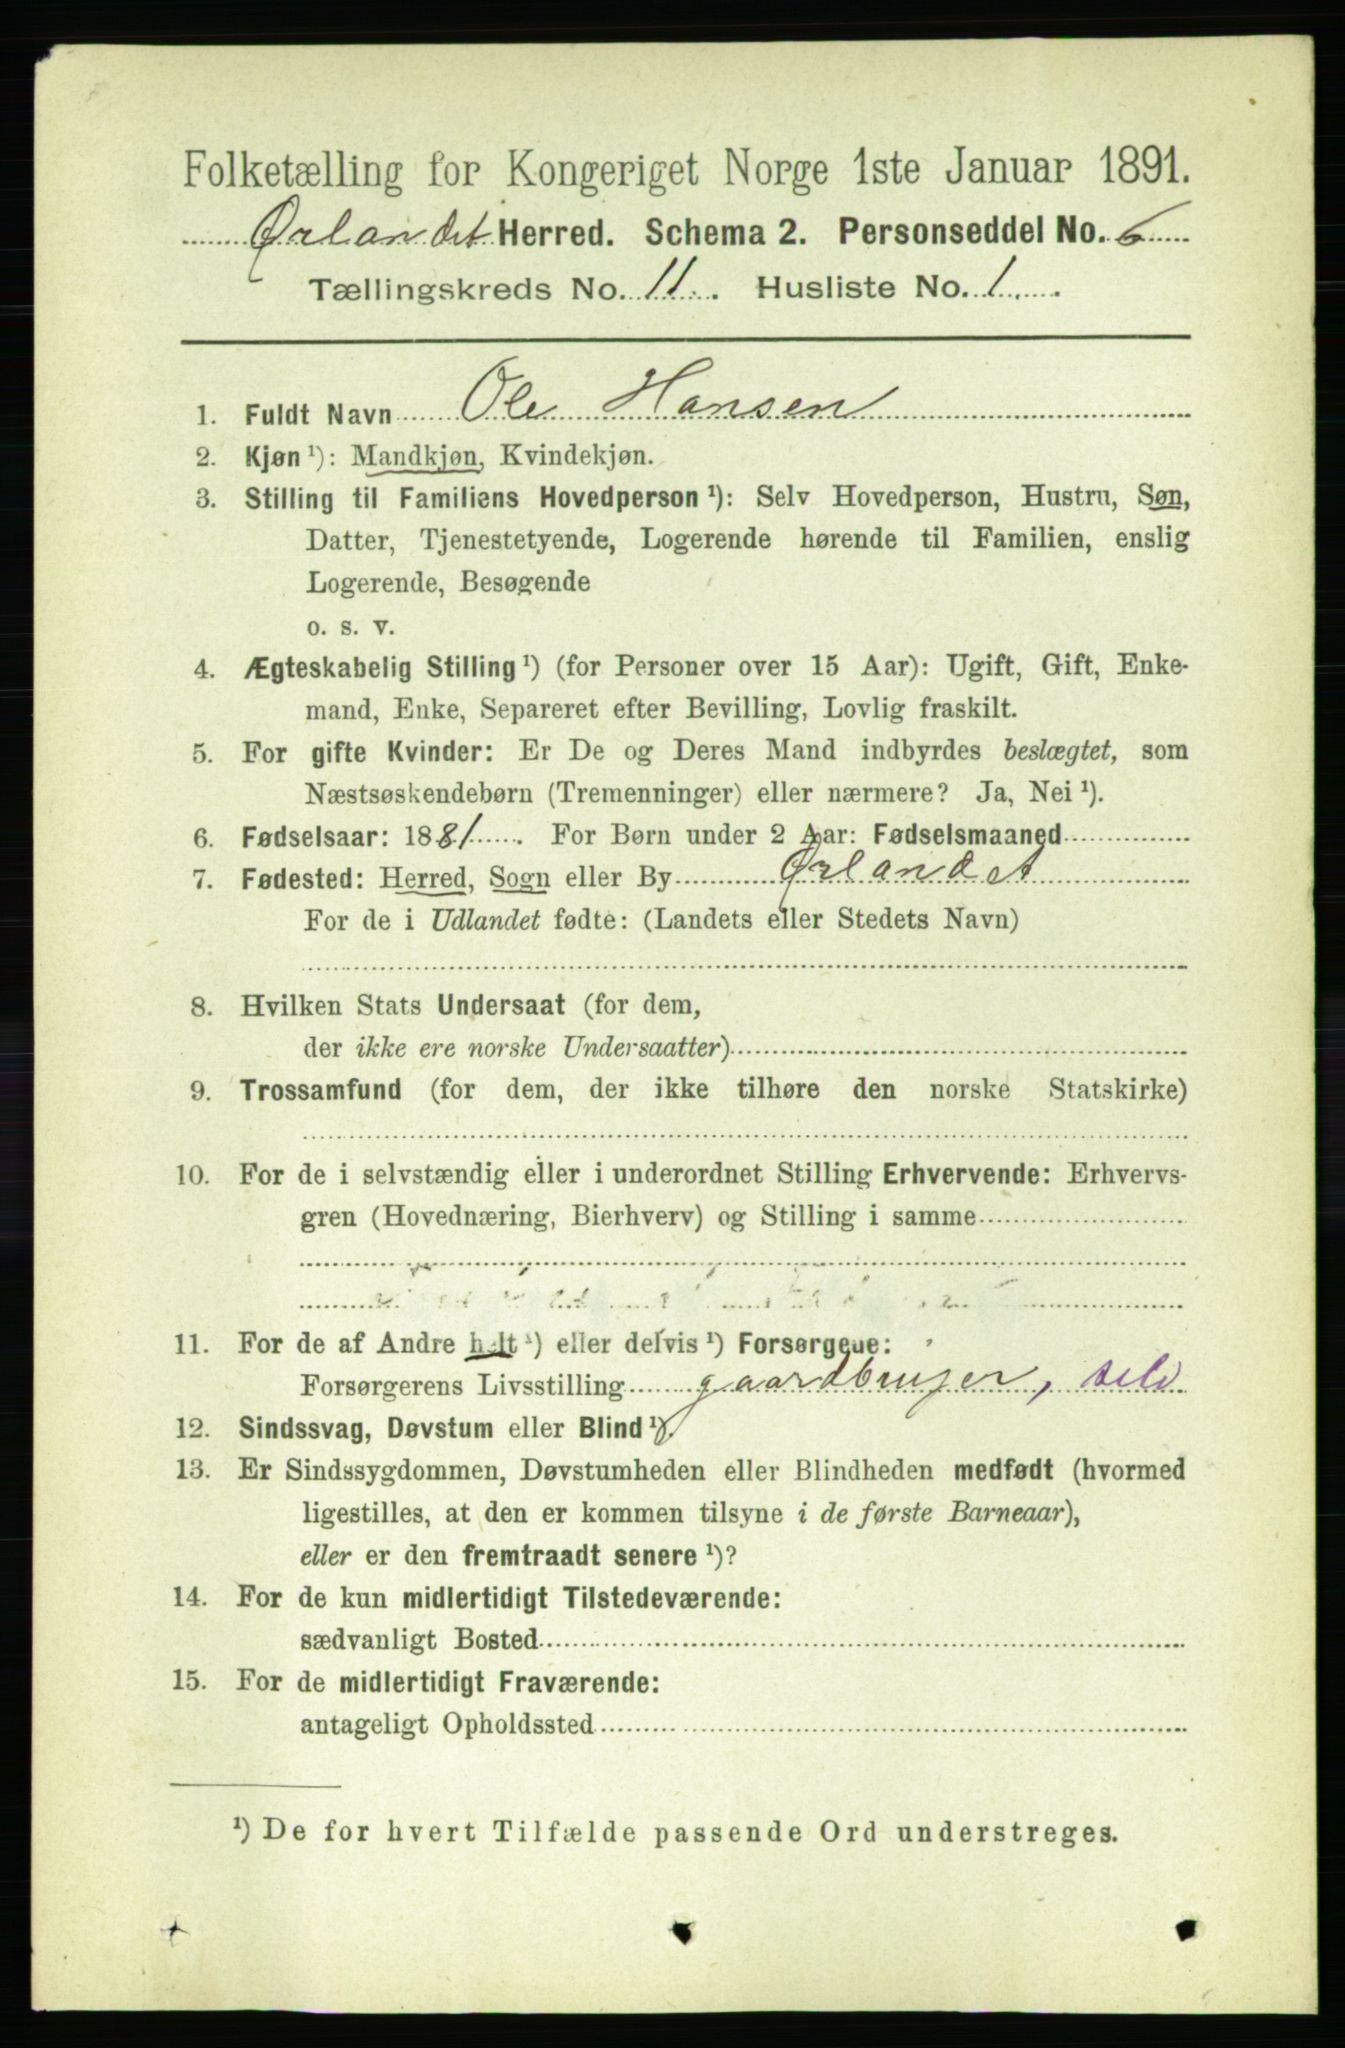 Folketælling for Kongeriget Norge 1ste Januar 1891.
Ørlandet Herred. Schema 2. Personseddel No. 6
Tællingskreds No. 11. Husliste No. 1.
1. Fuldt Navn Ole Hansen
2. Kjøn ¹): Mandkjøn, Kvindekjøn.
3. Stilling til Familiens Hovedperson ¹): Selv Hovedperson, Hustru, Søn,
Datter, Tjenestetyende, Logerende hørende til Familien, enslig
Logerende, Besøgende
o. s. v.
4. Ægteskabelig Stilling ¹) (for Personer over 15 Aar): Ugift, Gift, Enke-
mand, Enke, Separeret efter Bevilling, Lovlig fraskilt.
5. For gifte Kvinder: Er De og Deres Mand indbyrdes beslægtet, som
Næstsøskendebørn (Tremenninger) eller nærmere? Ja, Nei ¹).
6. Fødselsaar: 1881. For Børn under 2 Aar: Fødselsmaaned
7. Fødested: Herred, Sogn eller By Ørlandet
For de i Udlandet fødte: (Landets eller Stedets Navn)
8. Hvilken Stats Undersaat (for dem,
der ikke ere norske Undersaatter)
9. Trossamfund (for dem, der ikke tilhøre den norske Statskirke)
10. For de i selvstændig eller i underordnet Stilling Erhvervende: Erhvervs-
gren (Hovednæring, Bierhverv) og Stilling i samme
11. For de af Andre helt ¹) eller delvis ¹) Forsørgede:
Forsørgerens Livsstilling gaardbruger, selv
12. Sindssvag, Døvstum eller Blind ¹).
13. Er Sindssygdommen, Døvstumheden eller Blindheden medfødt (hvormed
ligestilles, at den er kommen tilsyne i de første Barneaar),
eller er den fremtraadt senere ¹)?
14. For de kun midlertidigt Tilstedeværende:
sædvanligt Bosted
15. For de midlertidigt Fraværende:
antageligt Opholdssted
¹) De for hvert Tilfælde passende Ord understreges.